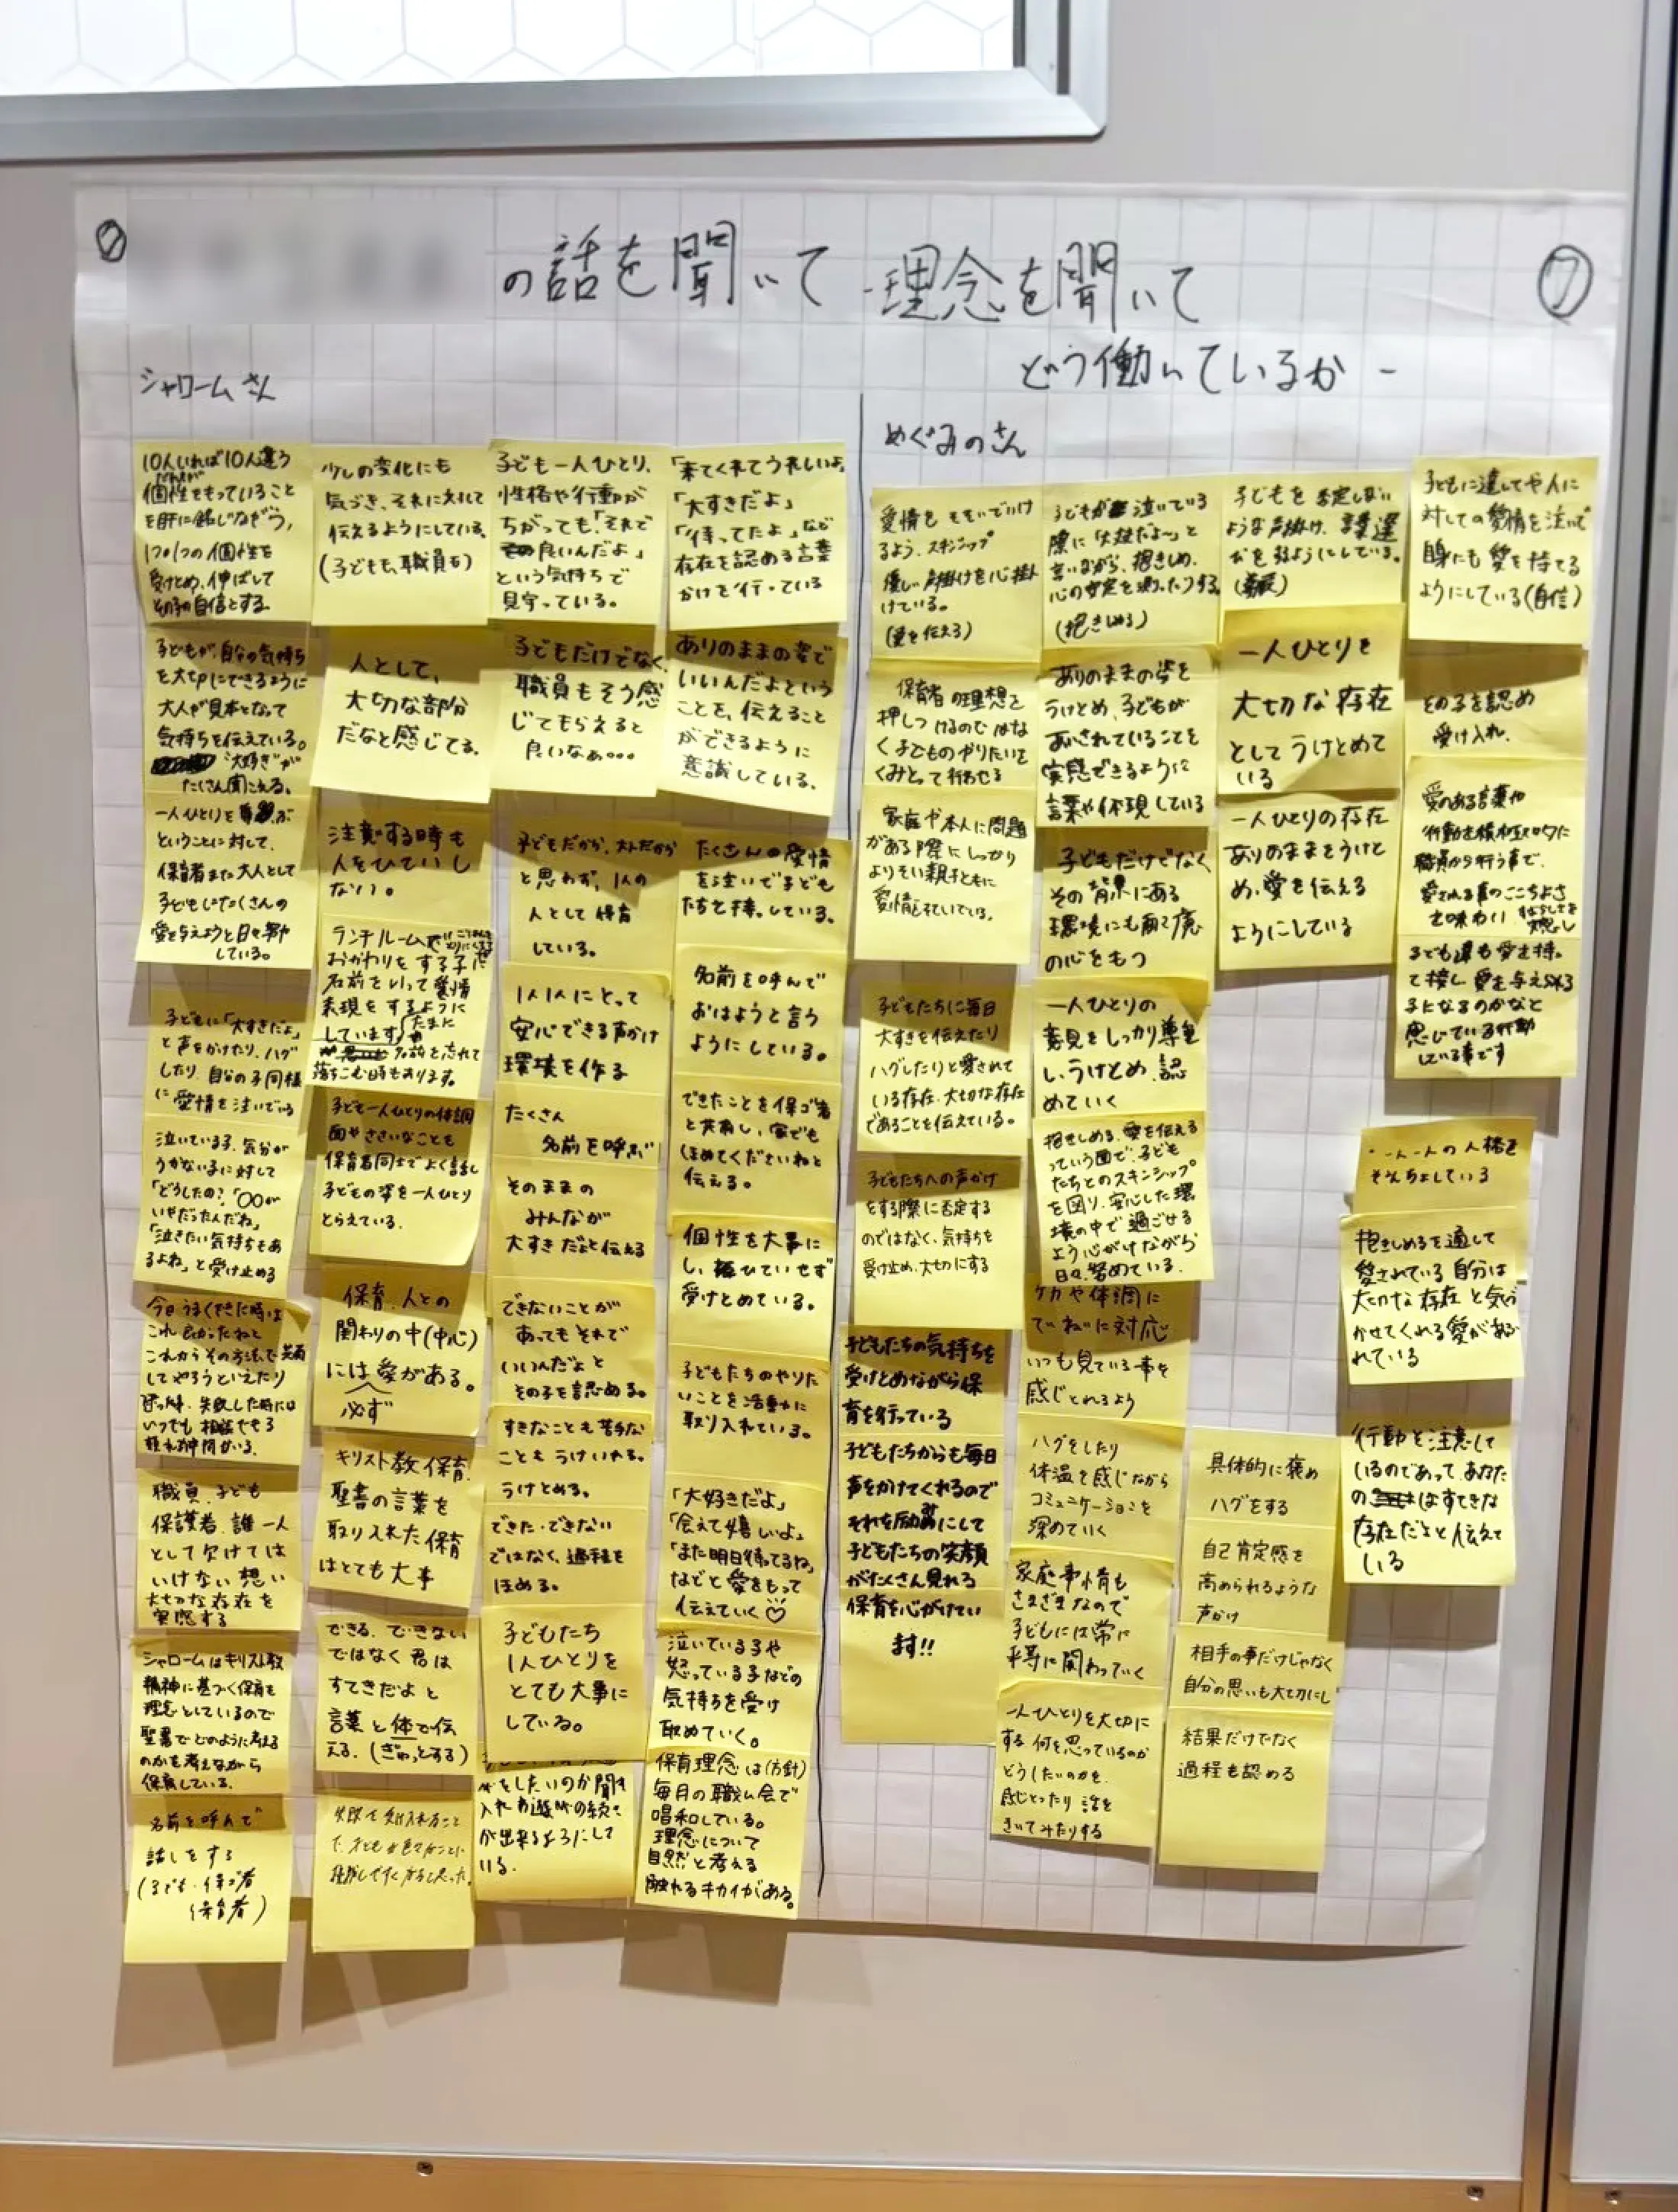 の話を聞いて -理念を聞いて
どう働いているか -
⑦
シャロームさん
10人いれば10人違う
個性をもっていること
を肝に銘じながら、
1つ1つの個性を
受けとめ、伸ばして
その子の自信とする
子どもが、自分の気持ち
を大切にできるように
大人が見本となって
気持ちを伝えている。
"大好き"が
たくさん聞こえる。
一人ひとりを
ということに対して、
保育者また大人として
子どもにたくさんの
愛を与えようと日々努め
している。
子どもに「大すきだよ」
と声をかけたり、ハグ
したり、自分の子同様
に愛情を注いでいる
泣いている子、気分が
うかない子に対して
「どうしたの?「〇〇が
いやだったんだね」
「泣きたい気持ちもあ
るよね」と受け止める
今日うまくできた時は
これ良かったねと
これからその方法で共有
してやろうといえたり
失敗した時には
いつでも相談できる
仲間がいる。
職員、子ども
保護者、誰一人
として欠けては
いけない想い
大切な存在を
実感する
シャロームはキリスト教
精神に基づく保育を
理念としているので
聖書でどのように考える
のかを考えながら
保育している。
名前を呼んで
話しをする
(子ども・保ゴ者
保育者)
少しの変化にも
気づき、それに対して
伝えるようにしている。
(子どもも、職員も)
人として、
大切な部分
だなと感じてる。
注意する時も
人をひていし
ない。
ランチルームで
おかわりをする子に
名前をいって愛情
表現をするように
しています
たまに
名前を忘れて
落ちこむ時もあります。
子ども一人ひとりの体調
面やささいなことも
保育者同士でよく話し
子どもの姿を一人ひとり
とらえている。
保育、人との
関わりの中(中心)
には必ず愛がある。
キリスト教保育
聖書の言葉を
取り入れた保育
はとても大事
できる、できない
ではなく君は
すてきだよと
言葉と体で伝
える。(ぎゅっとする)
子ども一人ひとり、
性格や行動が
ちがっても「それで
良いんだよ」
という気持ちで
見守っている。
子どもだけでなく、
職員もそう感
じてもらえると
良いなぁ…
子どもだから、大人だから
と思わず、1人の
人として保育
している。
1人1人にとって
安心できる声かけ
環境を作る
たくさん
名前を呼ぶ
そのままの
みんなが
大すきだよと伝える
できないことが
あってもそれで
いいんだよと
その子を認める。
すきなことも苦手な
こともうけいれる。
うけとめる。
できた・できない
ではなく、過程を
ほめる。
子どもたち
1人ひとりを
とても大事に
している。
をしたいのか聞き
入れお遊びの続き
が出来るようにして
いる。
「来てくれてうれしいよ」
「大すきだよ」
「待ってたよ」など
存在を認める言葉
かけを行っている
ありのままの姿で
いいんだよという
ことを、伝えること
ができるように
意識している。
たくさんの愛情
を注いで子ども
たちと接している。
名前を呼んで
おはようと言う
ようにしている。
できたことを保ゴ者
と共有し、家でも
ほめてくださいねと
伝える。
個性を大事に
し、ひていせず
受けとめている。
子どもたちのやりた
いことを活動に
取り入れている。
「大好きだよ」
「会えて嬉しいよ」
「また明日待ってるね」
などと愛をもって
伝えていく♡
泣いている子や
怒っている子などの
気持ちを受け
止めていく。
保育理念は(方針)
毎月の職員会で
唱和している。
理念について
自然と考える
触れるキカイがある。
めぐみのさん
愛情をそそいでいけ
るよう、スキンシップ
優しい声掛けを心掛
けている。
(愛を伝える)
保育者の理想を
押しつけるのではな
く子どものやりたいを
くみとって行わせる
家庭や本人に問題
がある際にしっかり
よりそい親子ともに
愛情をそそいでいる。
子どもたちに毎日
大すきを伝えたり
ハグしたりと愛されて
いる存在、大切な存在
であることを伝えている。
子どもたちへの声かけ
をする際に否定する
のではなく、気持ちを
受け止め、大切にする
子どもたちの気持ちを
受けとめながら保
育を行っている
子どもたちからも毎日
声をかけてくれるので
それを励みにして
子どもたちの笑顔
がたくさん見れる
保育を心がけてい
ます!!
子どもが泣いている
際に「大丈夫だよ〜」と
言いながら、抱きしめ、
心の安定を図ったりする。
(抱きしめる)
ありのままの姿を
うけとめ、子どもが
あいされていることを
実感できるように
言葉や体現している
子どもだけでなく
その背景にある
環境にも配慮
の心をもつ
一人ひとりの
意見をしっかり尊重
し、うけとめ、認
めていく
抱きしめる、愛を伝える
っていう面で、子ども
たちとのスキンシップ
を図り、安心した環
境の中で過ごせる
よう心がけながら
日々、努めている。
ケガや体調に
ていねいに対応
いつも見ている事を
感じとれるよう
ハグをしたり
体温を感じながら
コミュニケーションを
深めていく
家庭事情も
さまざまなので
子どもには常に
平等に関わっていく
一人ひとりを大切に
する、何を思っているのか
どうしたいのかを、
感じとったり話を
きいてみたりする
子どもを否定しない
ような声掛け、言葉選
びをするようにしている。
一人ひとりを
大切な存在
としてうけとめて
いる
一人ひとりの存在
ありのままをうけと
め、愛を伝える
ようにしている
具体的に褒め
ハグをする
自己肯定感を
高められるような
声かけ
相手の事だけじゃなく
自分の思いも大切にし
結果だけでなく
過程も認める
子どもに達してや人に
対しての愛情を注いで
自身にも愛を持てる
ようにしている(自信)
その子を認め
受け入れ、
愛のある言葉や
行動を積極的に
職員から行う事で、
愛される事のここちよさ
を味わい
子ども達も愛を持っ
て接し愛を与えられる
子になるのかなと
感じている行動
している事です
・一人一人の人格を
そんちょしている
抱きしめるを通して
愛されている自分は
大切な存在と気づ
かせてくれる愛があふ
れている
行動を注意して
いるのであって、あなた
のことはすてきな
存在だよと伝えて
いる